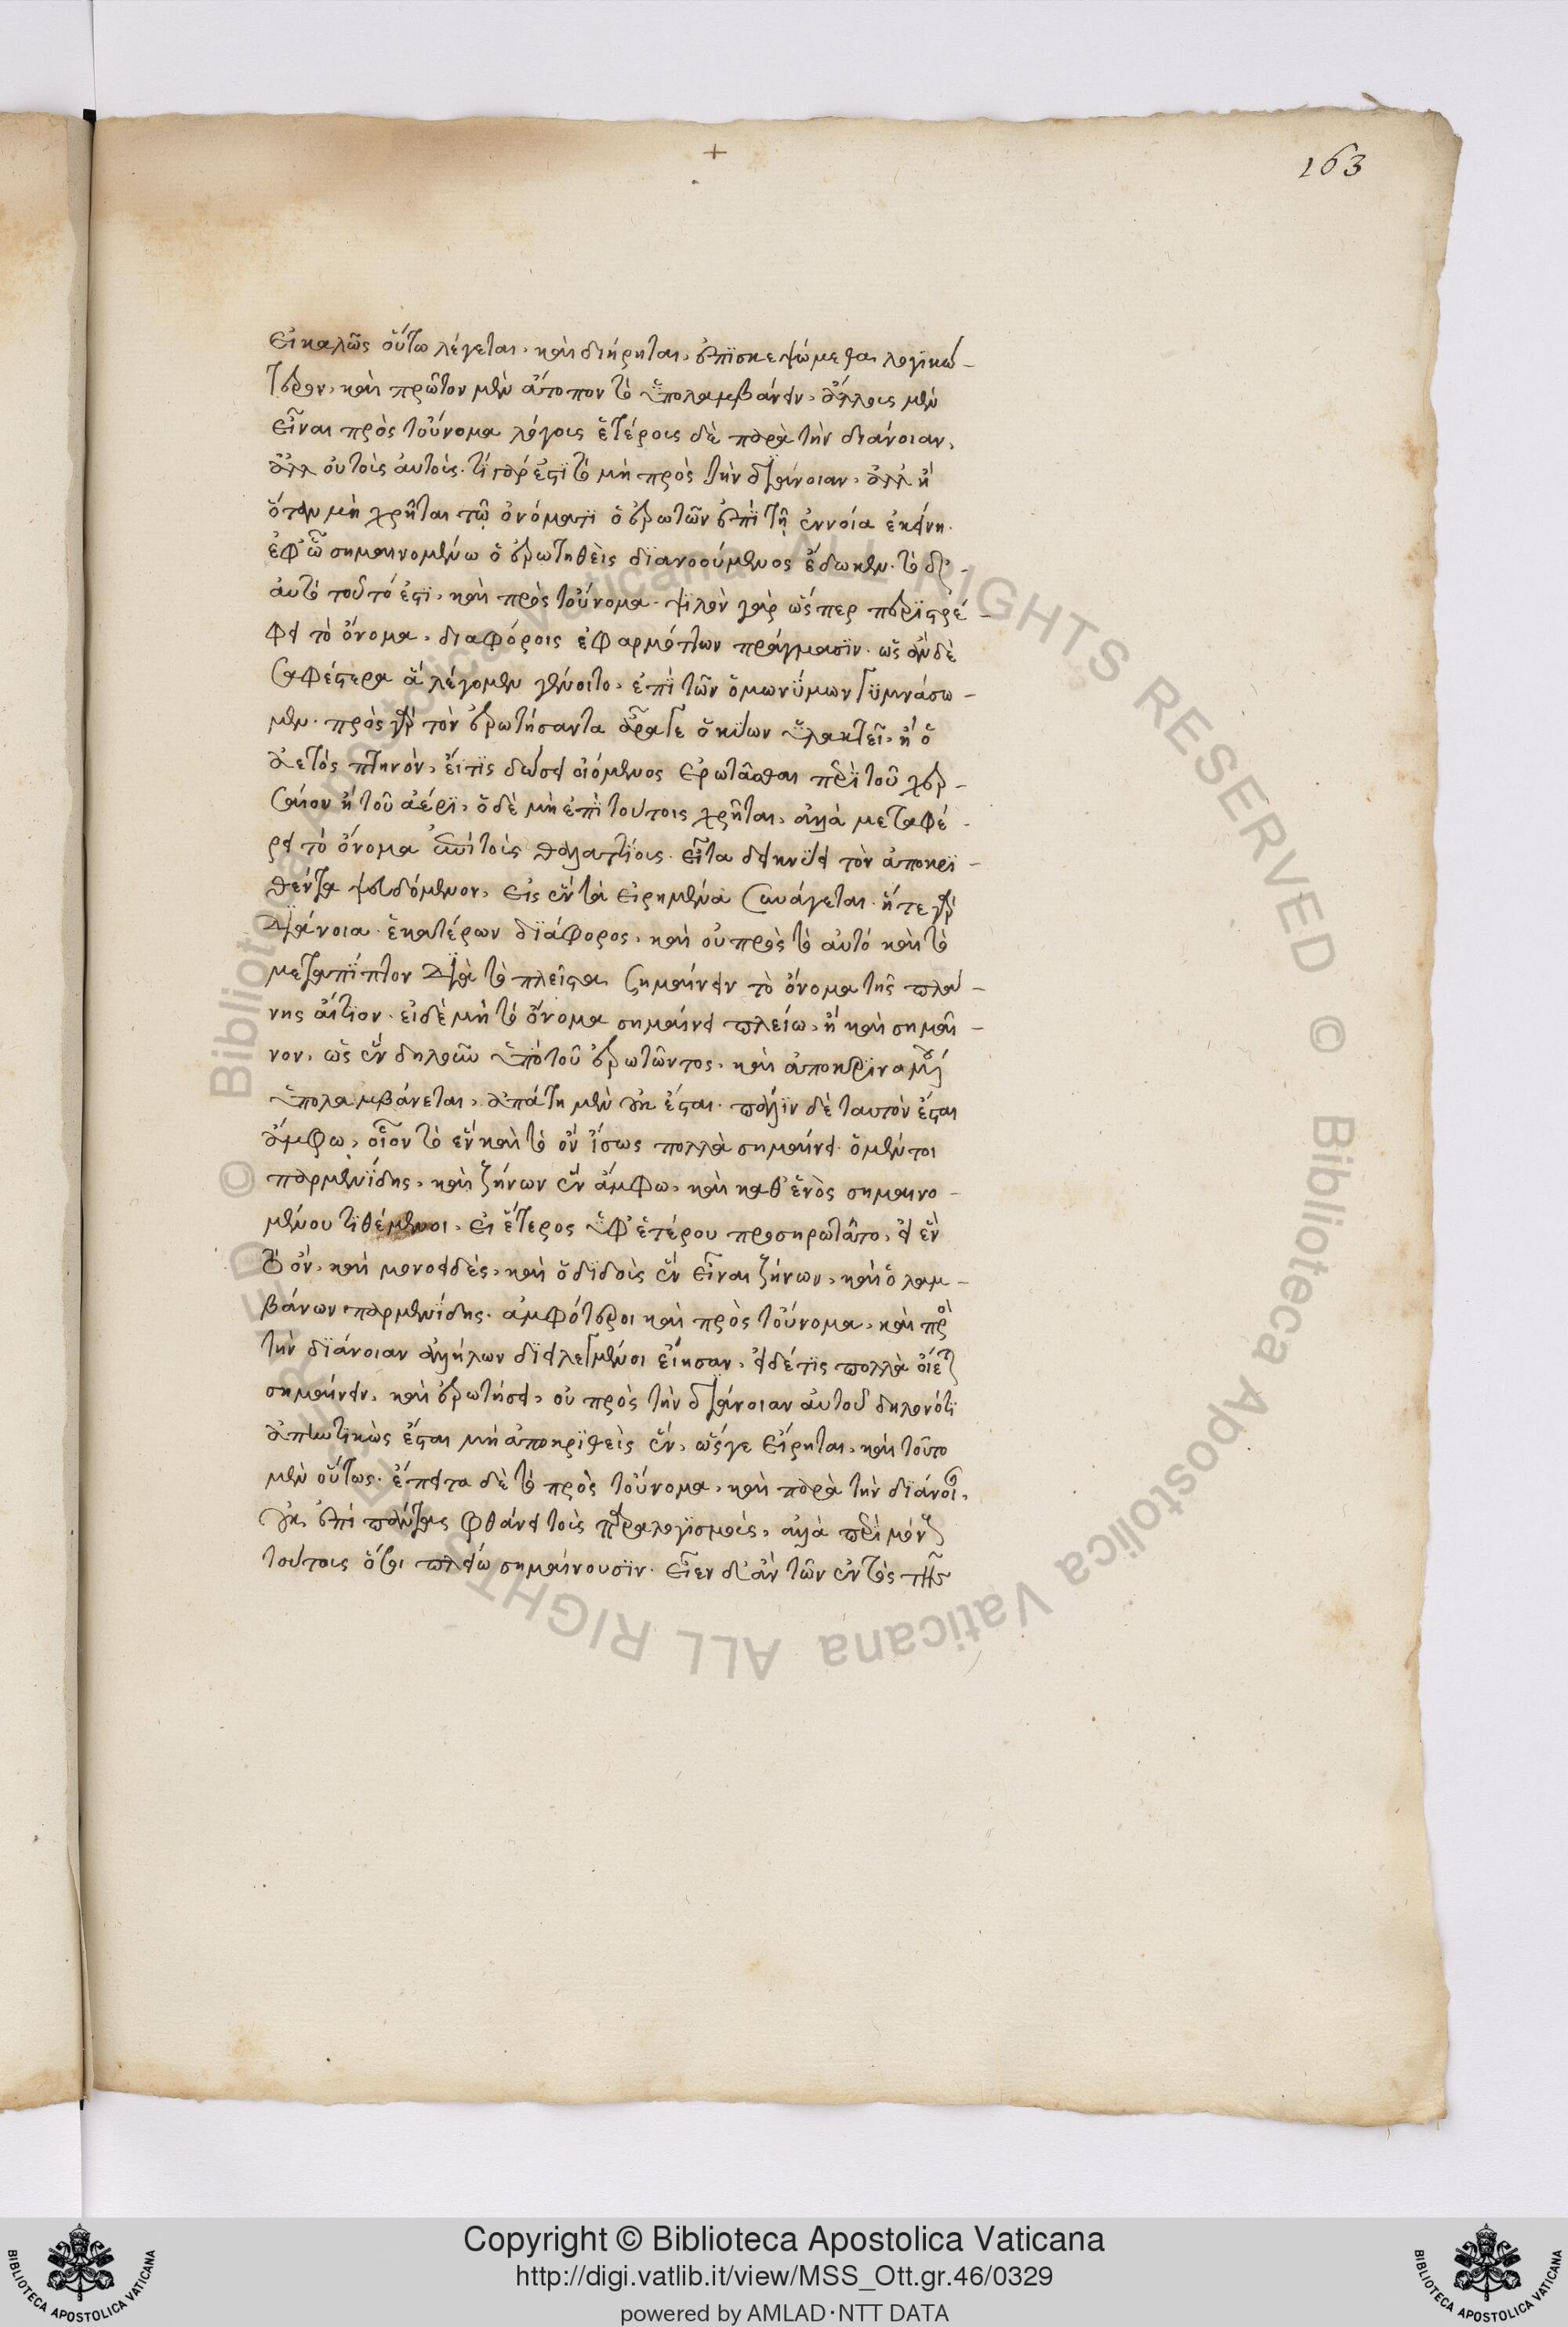 +
163
εἰ καλῶς οὕτω λέγεται, καὶ διήρηται, ἐπισκεψώμεθα λογικώ-
τερον, καὶ πρῶτον μὲν ἄτοπον τὸ ὑπολαμβάνειν, ἄλλοις μὲν
εἶναι πρὸς τοὔνομα λόγοις ἑτέροις δὲ παρὰ τὴν διάνοιαν,
ἀλλ οὐ τοῖς αὐτοῖς. τί γάρ ἐστι τὸ μὴ πρὸς τὴν διάνοιαν, ἀλλ ἢ
ὅταν μὴ χρῆται τῷ ὀνόματι ὁ ἐρωτῶν ἐπὶ τῇ ἐννοία ἐκείνη.
ἐφ ὧ σημαινομένω ὁ ἐρωτηθεὶς διανοούμενος ἔδωκεν. τὸ δ
αὐτὸ τοῦτό ἐστι, καὶ πρὸς τοὔνομα. ψιλὸν γὰρ ὥσπερ περιστρέ-
φει τὸ ὄνομα, διαφόροις ἐφαρμόττων πράγμασιν. ὡς ἂν δὲ
σαφέστερα ἃ λέγομεν γένοιτο, ἐπὶ τῶν ὁμωνύμων γυμνάσω-
μεν. πρὸς γὰρ τὸν ἐρωτήσαντα ἆρά γε ὁ κύων ὑλακτεῖ, ἢ ὁ
ἀετός πτηνὸν, εἴ τις δώσει οἰόμενος ἐρωτᾶσθαι περὶ τοῦ χερ-
σαίου ἢ τοῦ ἀέρι, ὁ δὲ μὴ ἐπὶ τούτοις χρῆται, ἀλλὰ μεταφέ-
ρει τὸ ὄνομα ἐπὶ τοῖς θαλαττίοις. εἶτα δεικνύει τὸν ἀποκρι-
θέντα ψευδόμενον, εἰς ἓν τὰ εἰρημένα συνάγεται. ἥ τε γὰρ
διάνοια ἑκατέρων διάφορος, καὶ οὐ πρὸς τὸ αὐτό καὶ τὸ
μεταπίπτον διὰ τὸ πλεῖστα σημαίνειν τὸ ὄνομα τῆς πλά-
νης αἴτιον. εἰ δὲ μὴ τὸ ὄνομα σημαίνει πλείω, ἢ καὶ σημαῖ-
νον, ὡς ἓν δηλοῦν ὑπὸ τοῦ ἐρωτῶντος, καὶ ἀποκριναμένου
ὑπολαμβάνεται, ἀπάτη μὲν οὐκ ἔσται. πάλιν δὲ ταυτὸν ἔσται
ἄμφω, οἷον τὸ ἓν καὶ τὸ ὂν ἴσως πολλὰ σημαίνει. ὁ μέντοι
παρμενίδης, καὶ ζήνων ἓν ἄμφω, καὶ καθ ἑνὸς σημαινο-
μένου τιθέμενοι, εἰ ἕτερος ὑφ ἑτέρου προσηρωτᾶτο, εἰ ἓν
τὸ ὄν, καὶ μονοειδὲς, καὶ ὁ διδοὺς ἓν εἶναι ζήνων, καὶ ὁ λαμ-
βάνων παρμενίδης. ἀμφότεροι καὶ πρὸς τοὔνομα, καὶ πρὸς
τὴν διάνοιαν ἀλλήλων διειλεγμένοι εἴησαν, εἰ δέ τις πολλὰ οἴεται
σημαίνειν, καὶ ἐρωτήσει, οὐ πρὸς τὴν διάνοιαν αὐτοῦ δηλονότι
ἀπατητικὸς ἔσται μὴ ἀποκριθεὶς ἓν, ὥς γε εἴρηται, καὶ τοῦτο
μὲν οὕτως. ἔπειτα δὲ τὸ πρὸς τοὔνομα, καὶ παρὰ τὴν διάνοιαν,
οὐκ ἐπὶ πάντας φθάνει τοὺς παραλογισμοὺς, ἀλλὰ περὶ μόνους
τούτοις ὅσοι πλείω σημαίνουσιν. εἶεν δ ἂν τῶν ἐντὸς